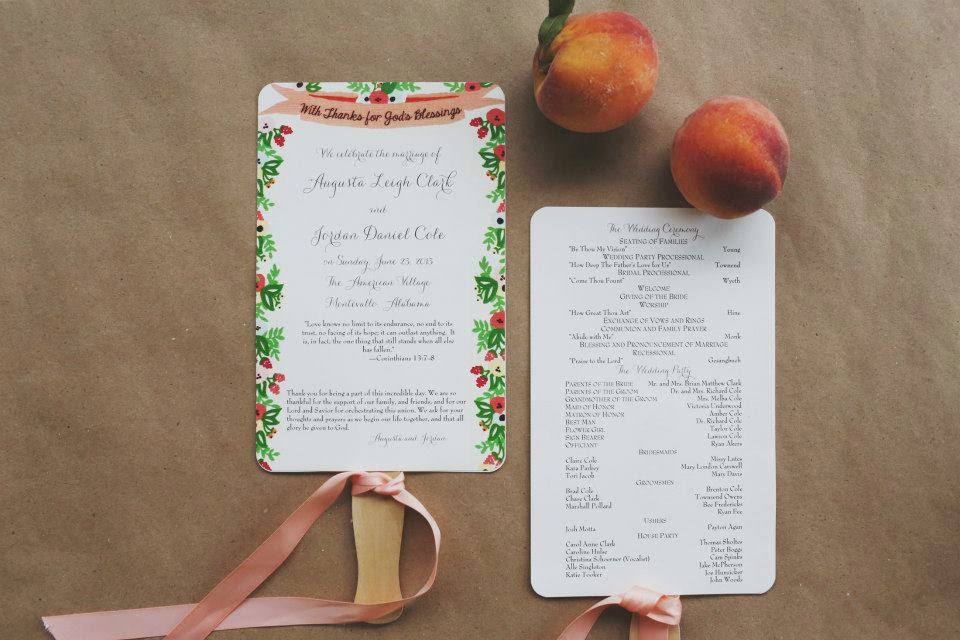 With Thanks for God's Blessings
We celebrate the marriage of
Augusta Leigh Clark
and
Jordan Daniel Cole
on Sunday, June 23, 2013
The American Village
Montevallo, Alabama
"Love knows no limit to its endurance, no end to its
trust, no facing of its hope; it can outlast anything. It
is, in fact, the one thing that still stands when all else
has fallen."
—Corinthians 13:7-8
Thank you for being a part of this incredible day. We are so
thankful for the support of our family, and friends, and for our
Lord and Savior for orchestrating this union. We ask for your
thoughts and prayers as we begin our life together, and that all
glory be given to God.
Augusta and Jordan
The Wedding Ceremony
Seating of Families
"Be Thou My Vision" Young
Wedding Party Processional
"How Deep The Father's Love for Us" Townend
Bridal Processional
"Come Thou Fount" Wyeth
Welcome
Giving of the Bride
Worship
"How Great Thou Art" Hine
Exchange of Vows and Rings
Communion and Family Prayer
"Abide with Me" Monk
Blessing and Pronouncement of Marriage
Recessional
"Praise to the Lord" Gesangbuch
The Wedding Party
Parents of the Bride Mr. and Mrs. Brian Matthew Clark
Parents of the Groom Dr. and Mrs. Richard Cole
Grandmother of the Groom Mrs. Melba Cole
Maid of Honor Victoria Underwood
Matron of Honor Amber Cole
Best Man Dr. Richard Cole
Flower Girl Taylor Cole
Sign Bearer Lawson Cole
Officiant Ryan Akers
Bridesmaids
Claire Cole Missy Lutes
Kara Parkey Mary London Carswell
Tori Jacob Mary Davis
Groomsmen
Brad Cole Brenton Cole
Chase Clark Townsend Owens
Marshall Pollard Bee Fredericks
Ryan Fee
Ushers
Josh Motta Payton Agan
House Party
Carol Anne Clark Thomas Sholtes
Caroline Hulse Peter Boggs
Christina Schoerner (Vocalist) Cam Spinks
Alle Singleton Jake McPherson
Katie Tooker Joe Hunsicker
John Woods